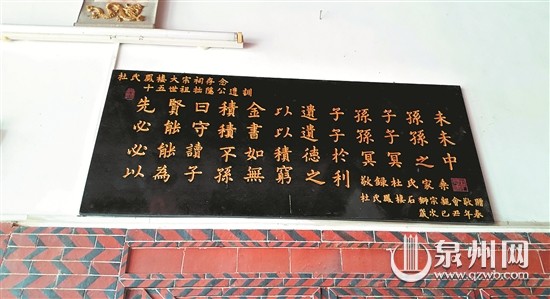 杜氏鳳樓大宗祠存念
十五世祖拙隱公遺訓
先賢曰積金以遺子孫未
必能守積書以遺子孫未
必能讀不如積德於冥冥之中
以為子孫無窮之利
敬錄杜氏家乘
杜氏鳳樓石獅宗親會敬贈
歲次己丑年春
泉州网
www.qzwb.com